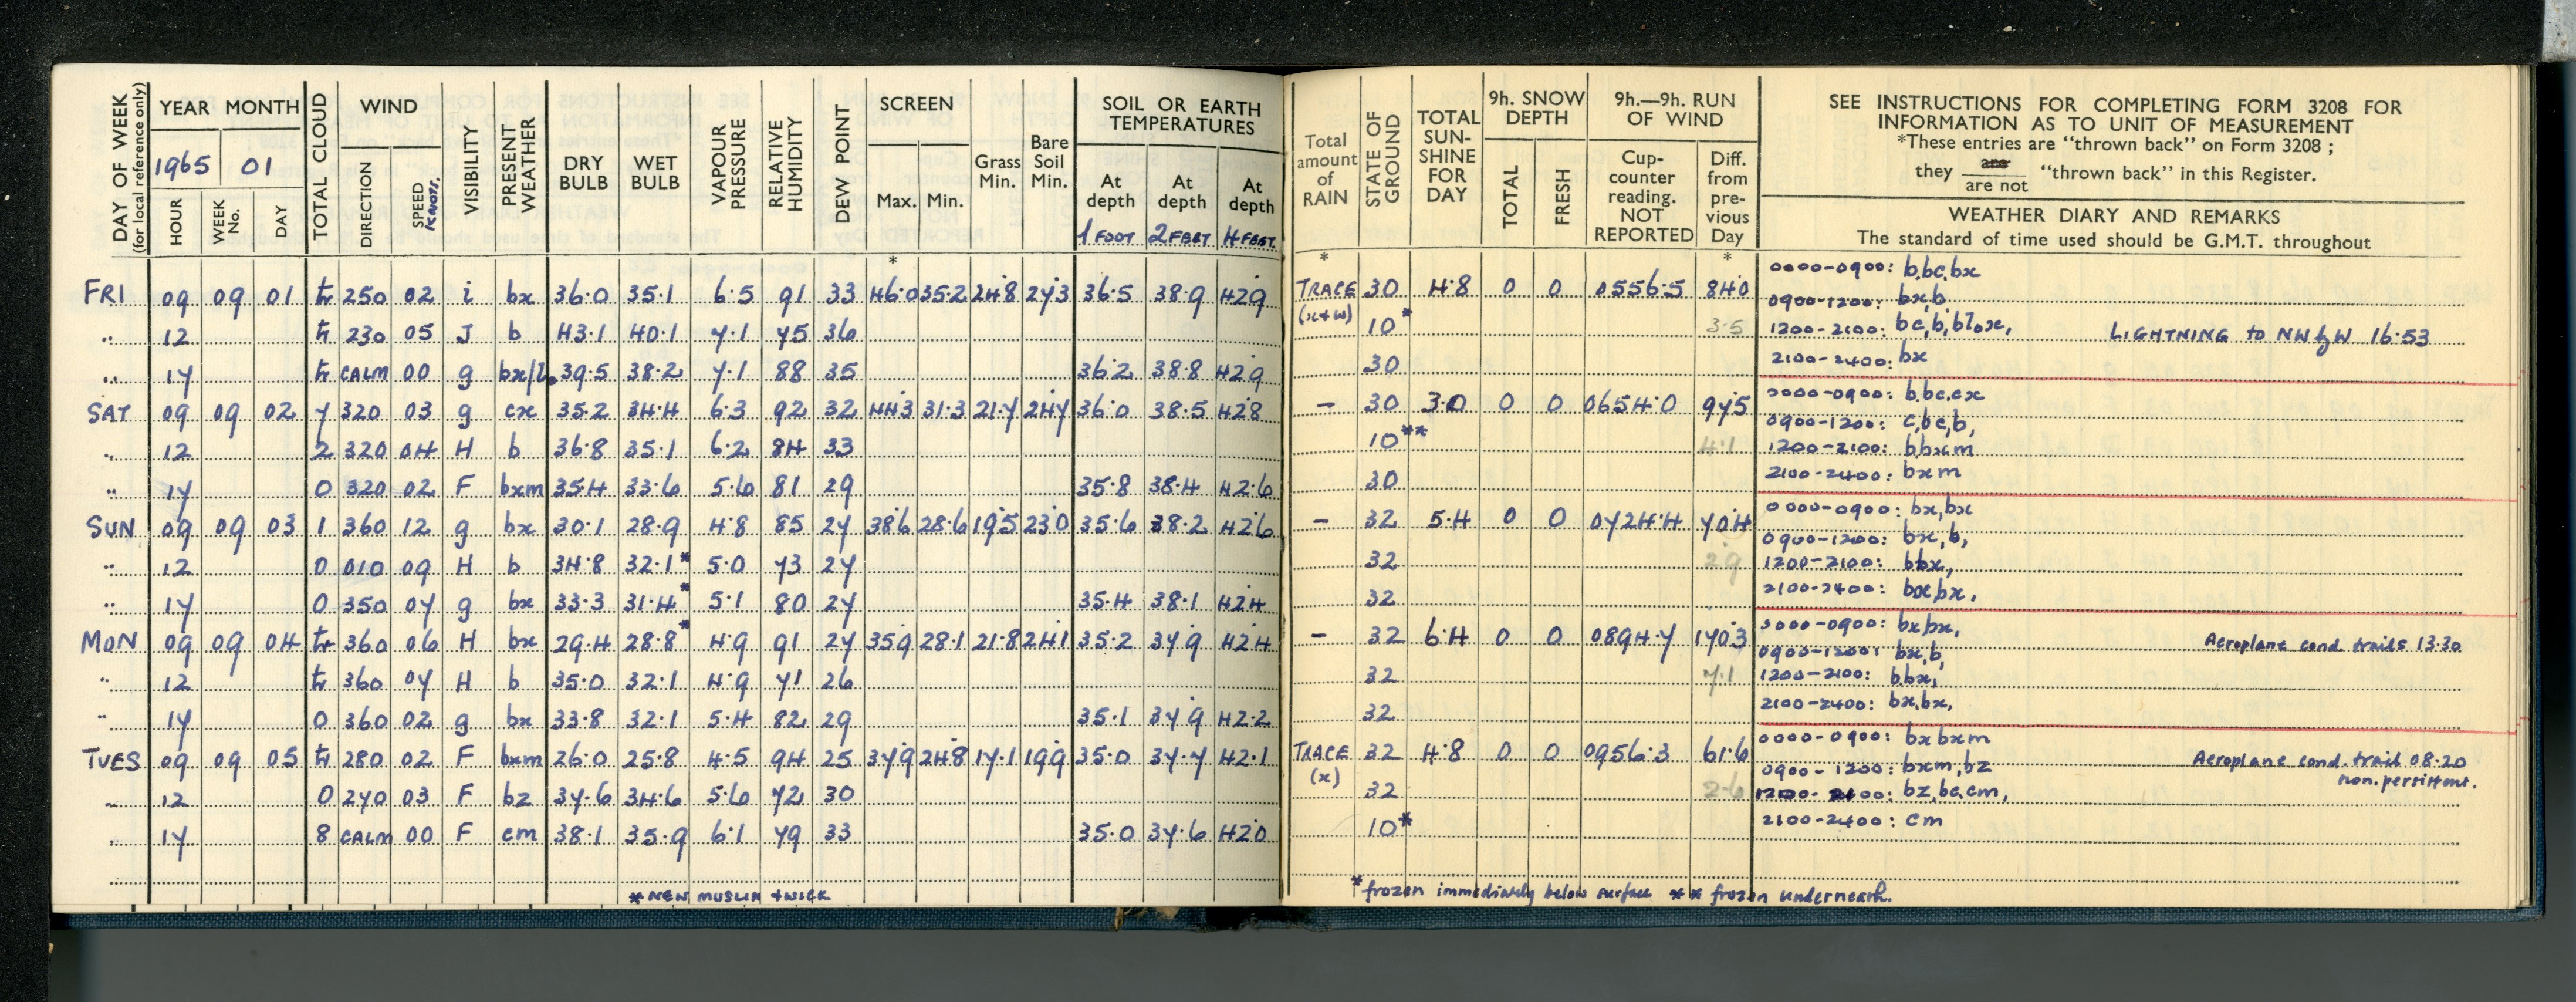 DAY OF WEEK
(for local reference only)
YEAR MONTH
1965 01
HOUR WEEK No. DAY
TOTAL CLOUD
WIND
DIRECTION SPEED KNOTS.
VISIBILITY
PRESENT WEATHER
DRY BULB WET BULB
VAPOUR PRESSURE
RELATIVE HUMIDITY
DEW POINT
SCREEN
Max. Min.
Grass Min.
Bare Soil Min.
SOIL OR EARTH TEMPERATURES
At depth At depth At depth
1 FOOT 2 FEET 4 FEET
Total amount of RAIN
STATE OF GROUND
TOTAL SUN-SHINE FOR DAY
9h. SNOW DEPTH
TOTAL FRESH
9h.—9h. RUN OF WIND
Cup-counter reading. NOT REPORTED
Diff. from pre-vious Day
SEE INSTRUCTIONS FOR COMPLETING FORM 3208 FOR
INFORMATION AS TO UNIT OF MEASUREMENT
*These entries are "thrown back" on Form 3208 ;
they are / are not "thrown back" in this Register.
WEATHER DIARY AND REMARKS
The standard of time used should be G.M.T. throughout
* * *
FRI 09 09 01 tr 250 02 i bx 36.0 35.1 6.5 91 33 46.0 35.2 24.8 27.3 36.5 38.9 42.9 TRACE 30 4.8 0 0 0556.5 84.0 0000-0900: b,bc,bx
(x+w) 0900-1200: bx,b
" 12 tr 230 05 J b 43.1 40.1 7.1 75 36 10* 3.5 1200-2100: bc,b,blox, LIGHTNING to NW by W 16.53
" 17 tr CALM 00 g bx/l. 39.5 38.2 7.1 88 35 36.2 38.8 42.9 30 2100-2400: bx
SAT 09 09 02 7 320 03 g cx 35.2 34.4 6.3 92 32 44.3 31.3 21.7 24.7 36.0 38.5 42.8 - 30 3.0 0 0 0654.0 97.5 0000-0900: b,bc,cx
0900-1200: c,bc,b,
" 12 2 320 04 H b 36.8 35.1 6.2 84 33 10** 4.1 1200-2100: bbxcm
" 17 0 320 02 F bxm 35.4 33.6 5.6 81 29 35.8 38.4 42.6 30 2100-2400: bxm
SUN 09 09 03 1 360 12 g bx 30.1 28.9 4.8 85 27 38.6 28.6 19.5 23.0 35.6 38.2 42.6 - 32 5.4 0 0 0724.4 70.4 0000-0900: bx,bx
0900-1200: bx,b,
" 12 0 010 09 H b 34.8 32.1* 5.0 73 27 32 2.9 1200-2100: bbx,
" 17 0 350 07 g bx 33.3 31.4* 5.1 80 27 35.4 38.1 42.4 32 2100-2400: bx,bx,
MON 09 09 04 tr 360 06 H bx 29.4 28.8* 4.9 91 27 35.9 28.1 21.8 24.1 35.2 37.9 42.4 - 32 6.4 0 0 0894.7 170.3 0000-0900: bx,bx, Aeroplane cond. trails 13.30
0900-1200: bx,b,
" 12 tr 360 07 H b 35.0 32.1 4.9 71 26 32 7.1 1200-2100: b,bx,
" 17 0 360 02 g bx 33.8 32.1 5.4 82 29 35.1 37.9 42.2 32 2100-2400: bx,bx,
TUES 09 09 05 tr 280 02 F bxm 26.0 25.8 4.5 94 25 37.9 24.8 17.1 19.9 35.0 37.7 42.1 TRACE 32 4.8 0 0 0956.3 61.6 0000-0900: bxbxm Aeroplane cond. trail 08.20
(x) 0900-1200: bxm,bz non.persistent.
" 12 0 270 03 F bz 37.6 34.6 5.6 72 30 32 2.6 1200-2100: bz,bc,cm,
" 17 8 CALM 00 F cm 38.1 35.9 6.1 79 33 35.0 37.6 42.0 10* 2100-2400: cm
* NEW MUSLIN + WICK
* frozen immediately below surface ** frozen underneath.